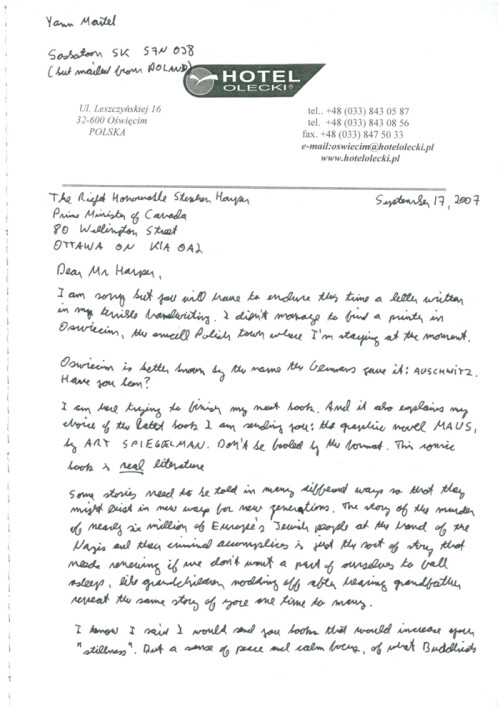 Yann Martel
Saskatoon SK S7N 0J8
(but mailed from POLAND)
HOTEL
OLECKI®
Ul. Leszczyńskiej 16
32-600 Oświęcim
POLSKA
tel.. +48 (033) 843 05 87
tel. +48 (033) 843 08 56
fax. +48 (033) 847 50 33
e-mail:oswiecim@hotelolecki.pl
www.hotelolecki.pl
The Right Honourable Stephen Harper
September 17, 2007
Prime Minister of Canada
80 Wellington Street
OTTAWA ON K1A 0A2
Dear Mr Harper,
I am sorry but you will have to endure this time a letter written
in my terrible handwriting. I didn't manage to find a printer in
Oswiecim, the small Polish town where I'm staying at the moment.
Oswiecim is better known by the name the Germans gave it: AUSCHWITZ.
Have you been?
I am here trying to finish my next book. And it also explains my
choice of the latest book I am sending you: the graphic novel MAUS,
by ART SPIEGELMAN. Don't be fooled by the format. This comic
book is real literature
Some stories need to be told in many different ways so that they
might exist in new ways for new generations. The story of the murder
of nearly six million of Europe's Jewish people at the hand of the
Nazis and their criminal accomplices is just the sort of story that
needs renewing if we don't want a part of ourselves to fall
asleep, like grandchildren nodding off after hearing grandfather
repeat the same story of yore one time to many.
I know I said I would send you books that would increase your
"stillness". But a sense of peace and calm focus, of what Buddhists